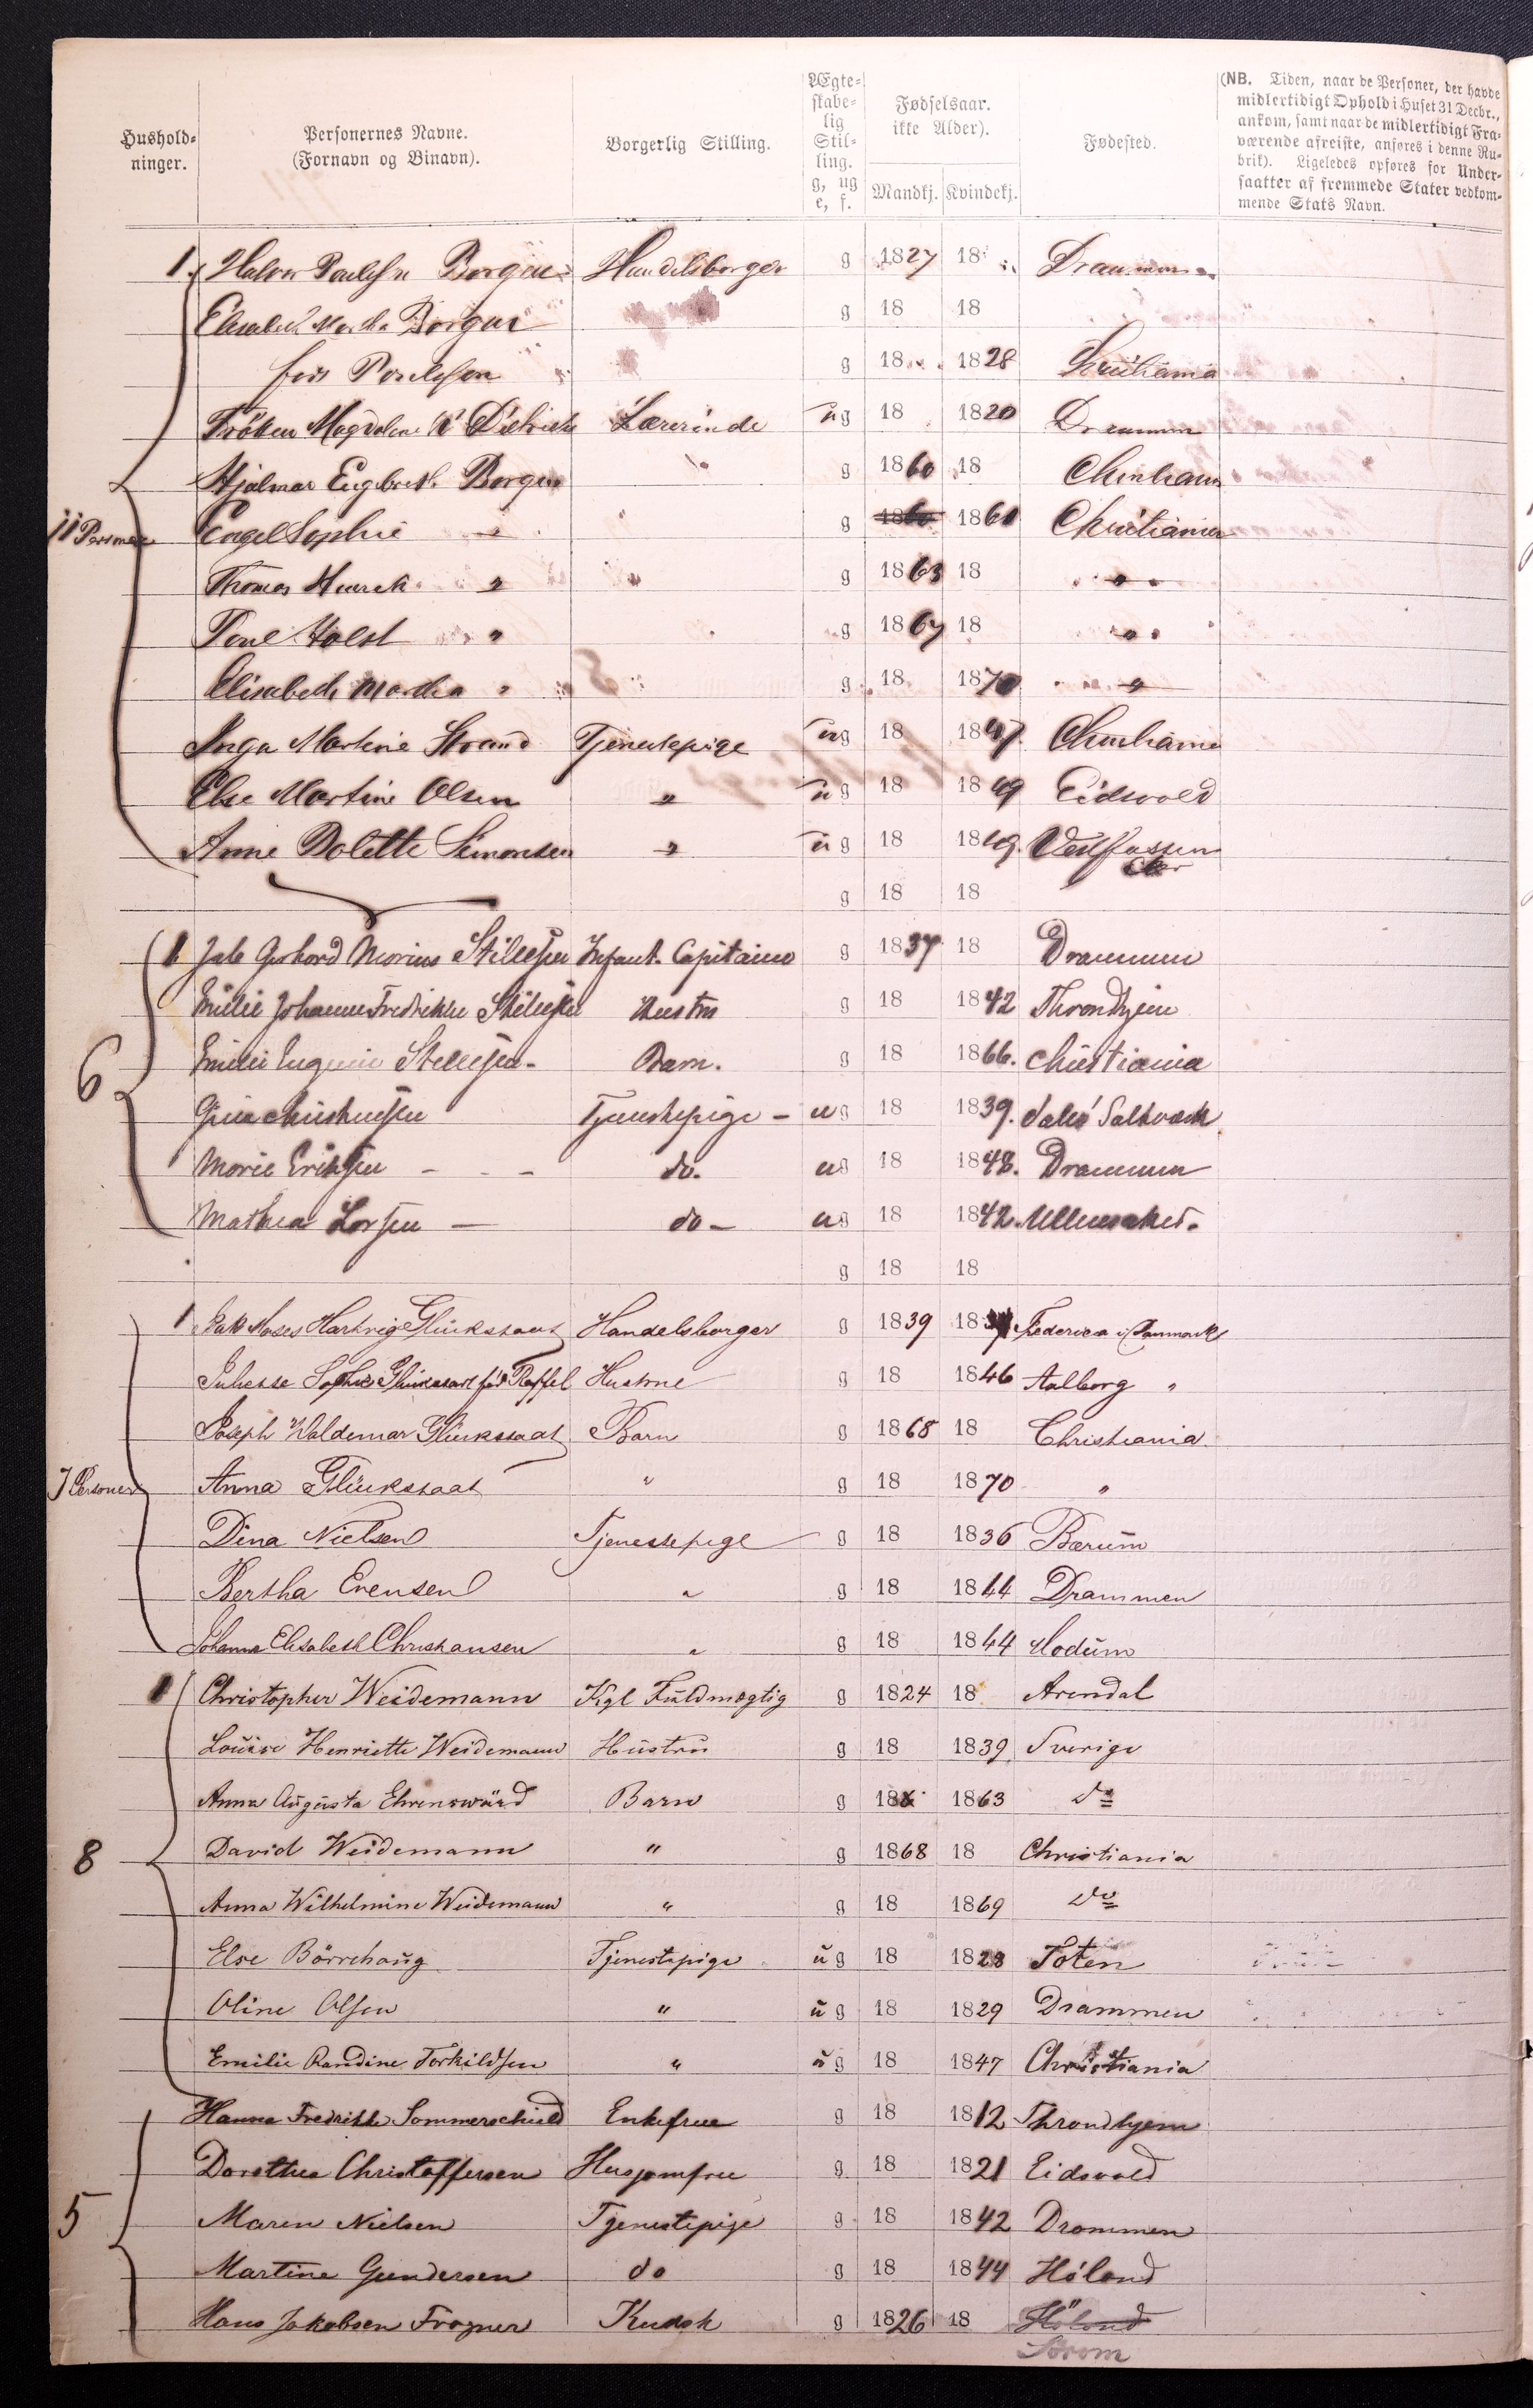 Hushold-
ninger.
Personernes Navne.
(Fornavn og Binavn).
Borgerlig Stilling.
Ægte-
skabe-
lig
Stil-
ling.
g, ug
e, f.
Fødselsaar.
ikke Alder).
Mandkj. Kvindekj.
Fødested.
(NB. Tiden, naar de Personer, der havde
midlertidigt Ophold i Huset 31 Decbr.,
ankom, samt naar de midlertidigt Fra-
værende afreiste, anføres i denne Ru-
brik). Ligeledes opføres for Under-
saatter af fremmede Stater vedkom-
mende Stats Navn.
1. Halvor Poulsen Borgen Handelsborger g 1827 18 Drammen
Elisabeth Martha Borgen g 18 18
født Poulsen g 18 1828 Christiania
Frøken Magdalene Lærerinde ug 18 1820 Drammen
Hjalmar Engebret Borgen " g 1860 18 Christiania
11 Personer Engel Sophie " " g 1860 1861 Christiania
Thomas " " g 1863 18 "
Poul Holst " g 1867 18 "
Elisabeth Martha " g 18 1870 "
Inga Martine Strand Tjenestepige ug 18 1847 Christiania
Else Martine Olsen " ug 18 1849 Eidsvold
Anne Bolette Simonsen " ug 18 1849. Vestfossen
Eker
g 18 18
1. Gerhard Marius Stillesen Infant. Capitaine g 1837 18 Drammen
Emilie Johanne Fredrikke Stillesen Hustru g 18 1842 Throndhjem
6 Emilie Eugenie Stillesen - Barn. g 18 1866. Christiania
Christensen Tjenestepige - ug 18 1839.
Marie Eriksen - - - do. ug 18 1848. Drammen
Mathea Larsen - do - ug 18 1842. Ullensaker.
g 18 18
1 Isak Moses Hartvig Glückstadt Handelsborger g 1839 18 Fredericia i Danmark
Juliette Sophie Glückstadt fød Raffel Hustrue g 18 1846 Aalborg "
Joseph Waldemar Glückstadt Barn g 1868 18 Christiania
7 Personer Anna Glückstadt " g 18 1870 "
Dina Nielsen Tjenestepige g 18 1836 Bærum
Bertha Evensen " g 18 1844 Drammen
Johanne Elisabeth Christiansen " g 18 1844 Modum
1 Christopher Weidemann Kgl Fuldmægtig g 1824 18 Arendal
Louise Henriette Weidemann Hustru g 18 1839 Sverige
Anna Augusta Ehrenswärd Barn g 18 1863 do
8 David Weidemann " g 1868 18 Christiania
Anna Wilhelmine Weidemann " g 18 1869 do
Else Börrehaug Tjenestepige ug 18 1828 Toten
Oline Olsen " ug 18 1829 Drammen
Emilie Randine Torkildsen " ug 18 1847 Christiania
Hanna Fredrikke Sommerschield Enkefrue g 18 1812 Throndhjem
Dorothea Christoffersen Husjomfru g 18 1821 Eidsvold
5 Maren Nielsen Tjenestepige g 18 1842 Drammen
Martine Gundersen do g 18 1844 Höland
Hans Jakobsen Frogner Kudsk g 1826 18 Höland
Sörom